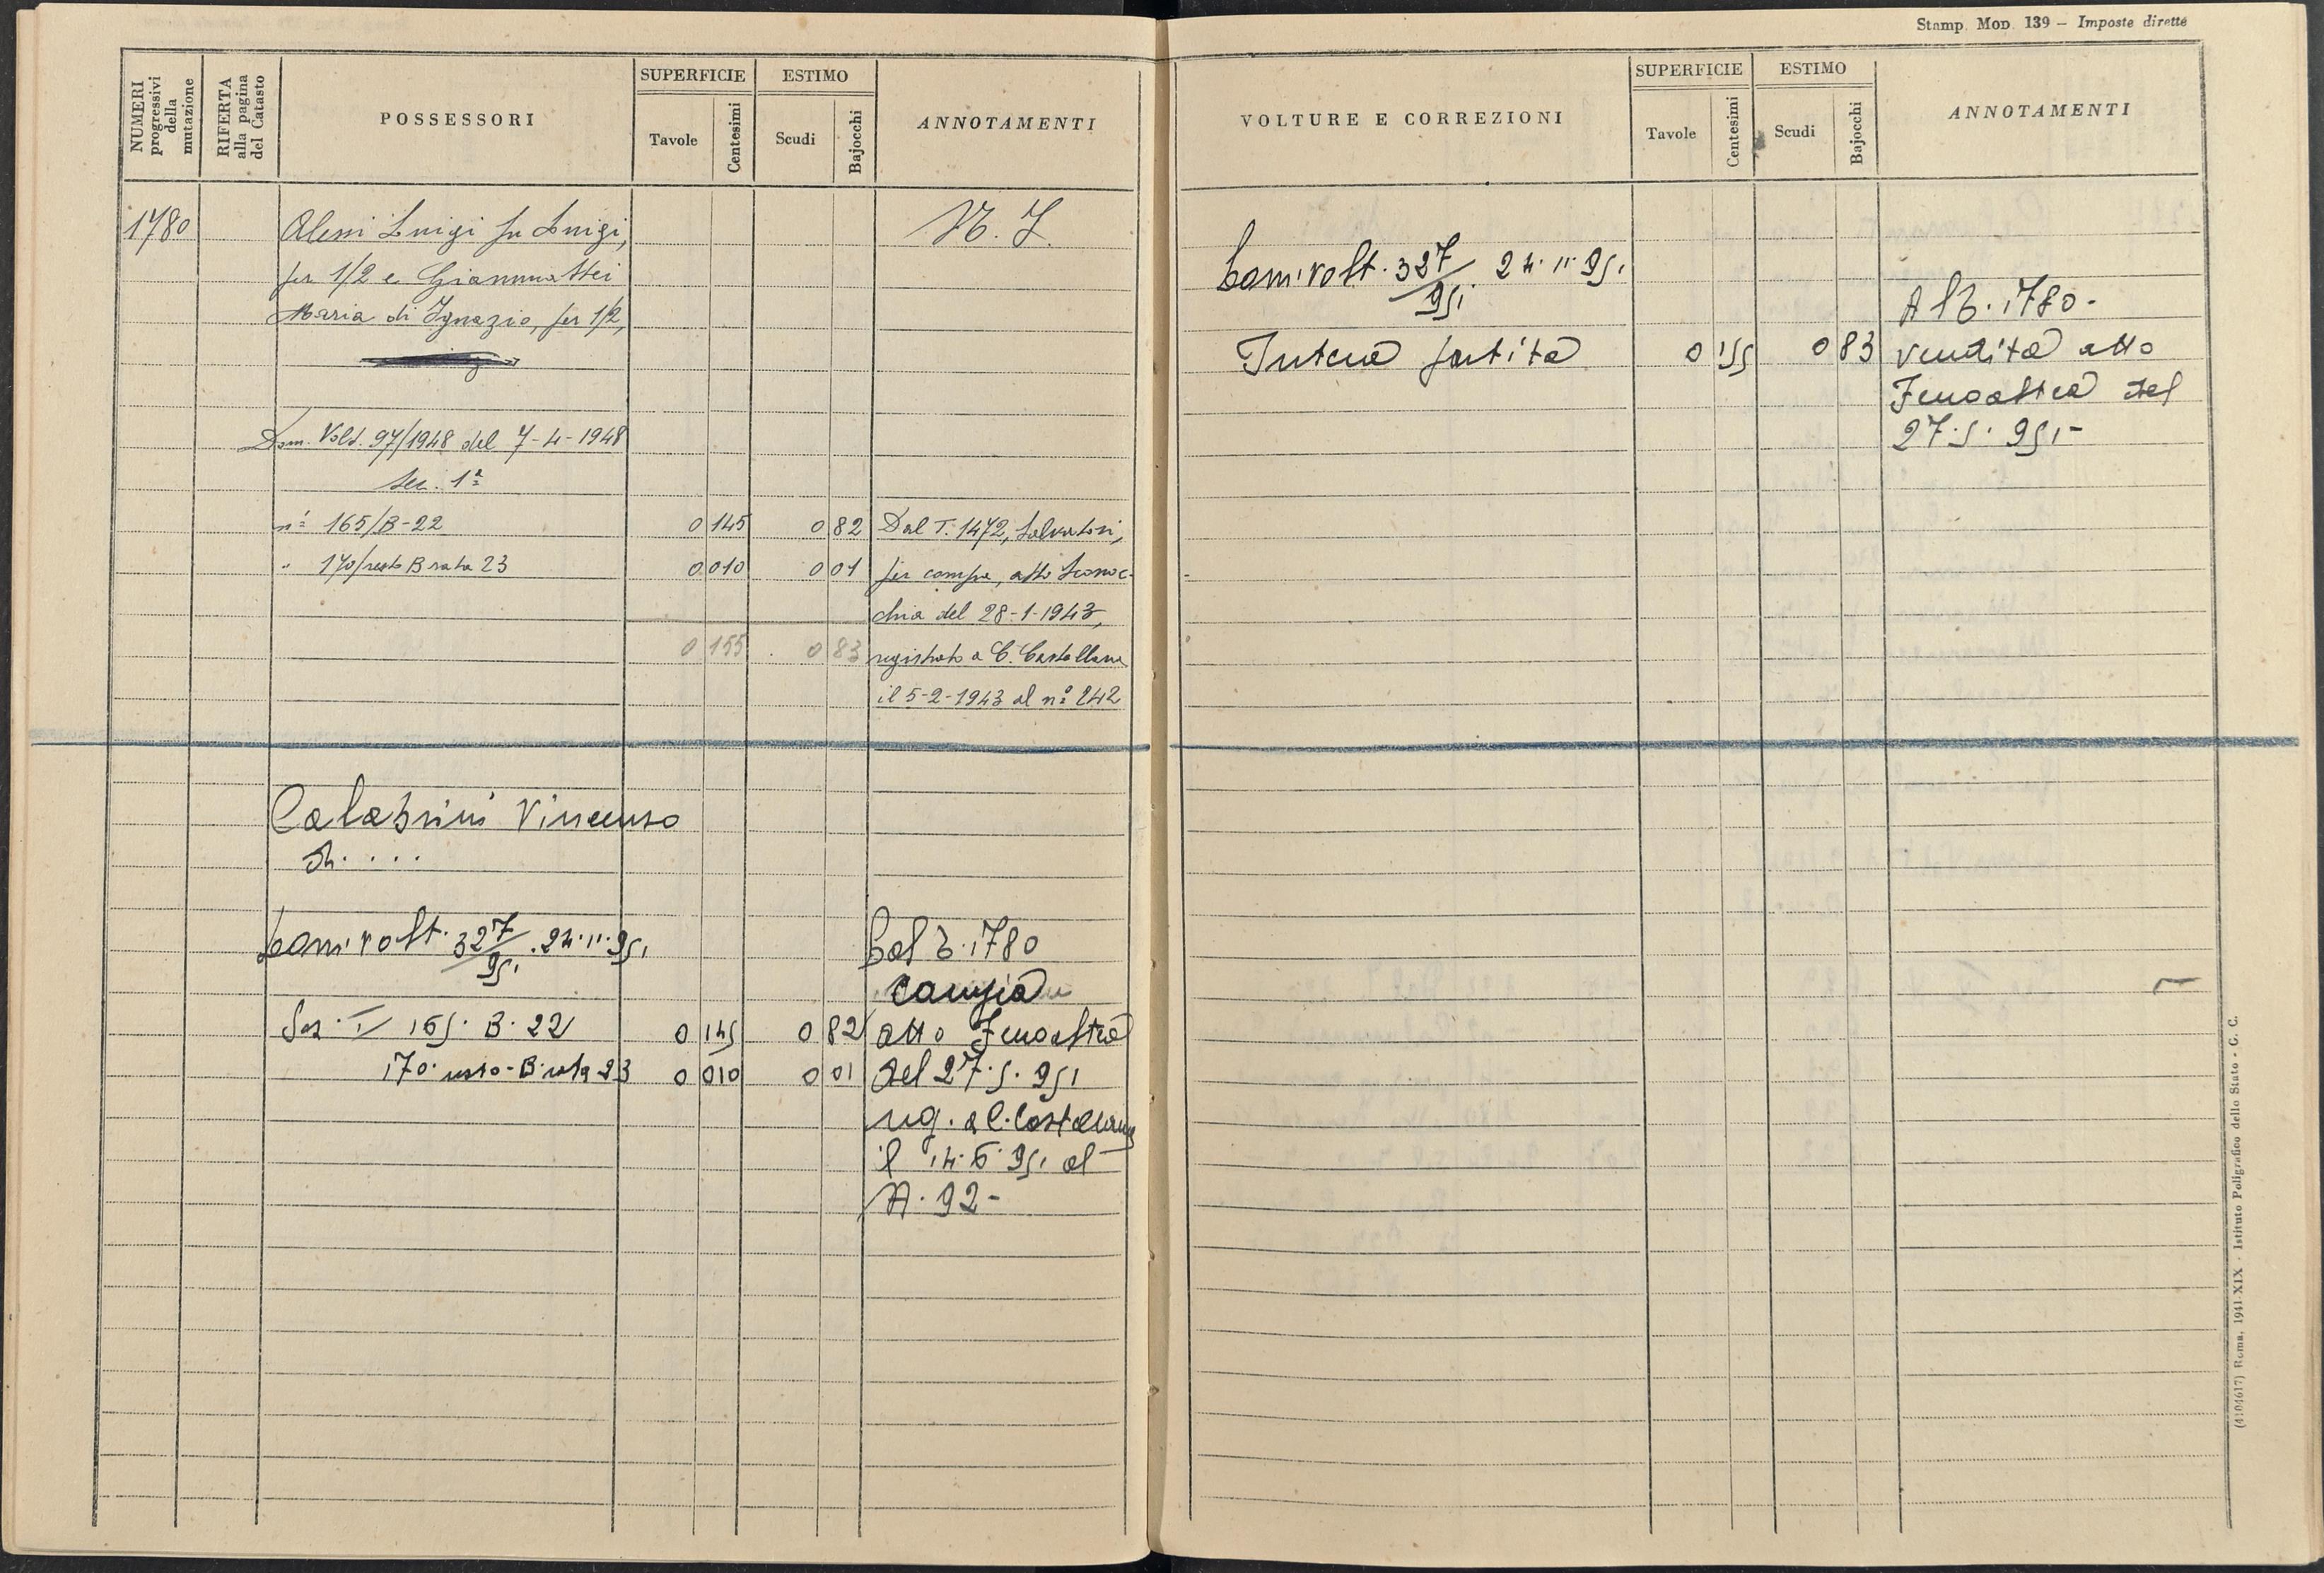 Stamp. Mod. 139 — Imposte dirette
NUMERI progressivi della mutazione
RIFERTA alla pagina del Catasto
POSSESSORI
SUPERFICIE
Tavole
Centesimi
ESTIMO
Scudi
Bajocchi
ANNOTAMENTI
VOLTURE E CORREZIONI
SUPERFICIE
Tavole
Centesimi
ESTIMO
Scudi
Bajocchi
ANNOTAMENTI
1780
Alessi Luigi fu Luigi,
per 1/2 e Giammattei
Maria di Ignazio, per 1/2,
Dom. Volt. 97/1948 del 7-4-1948
Sez. 1ª
nº 165/B-22 0 145 0 82 Dal T. 1472, Salvatori,
" 170/resto B rata 23 0 010 0 01 per compra, atto Leonoc-
chia del 28-1-1943,
0 155 0 83 registrato a C. Castellana
il 5-2-1943 al nº 242
Calabrini Vincenzo
di . . . .
Dom. volt. 327/951. 24.11.951
Dal T. 1780
compra
Sez. I 165. B. 22 0 145 0 82 atto
170. resto - B. rata 23 0 010 0 01 del 27.5.951
reg. a C. Castellana
il 14.6.951 al
N. 92-
Dom. volt. 327/951. 24.11.951
Al T. 1780-
Intera partita 0 155 0 83 vendita atto
del
27.5.951-
(4104617) Roma, 1941-XIX - Istituto Poligrafico dello Stato - C. C.